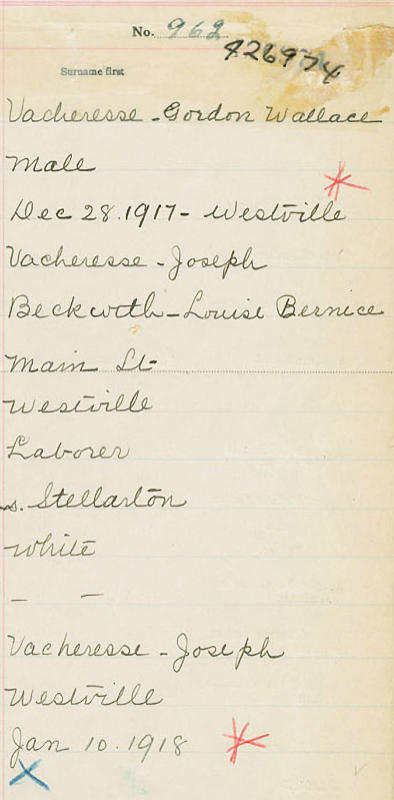 No. 962
426974
Surname first
Vacheresse - Gordon Wallace
Male
Dec 28. 1917 - Westville
Vacheresse - Joseph
Beckwith - Louise Bernice
Main St
Westville
Laborer
s. Stellarton
White
— —
Vacheresse - Joseph
Westville
Jan 10. 1918